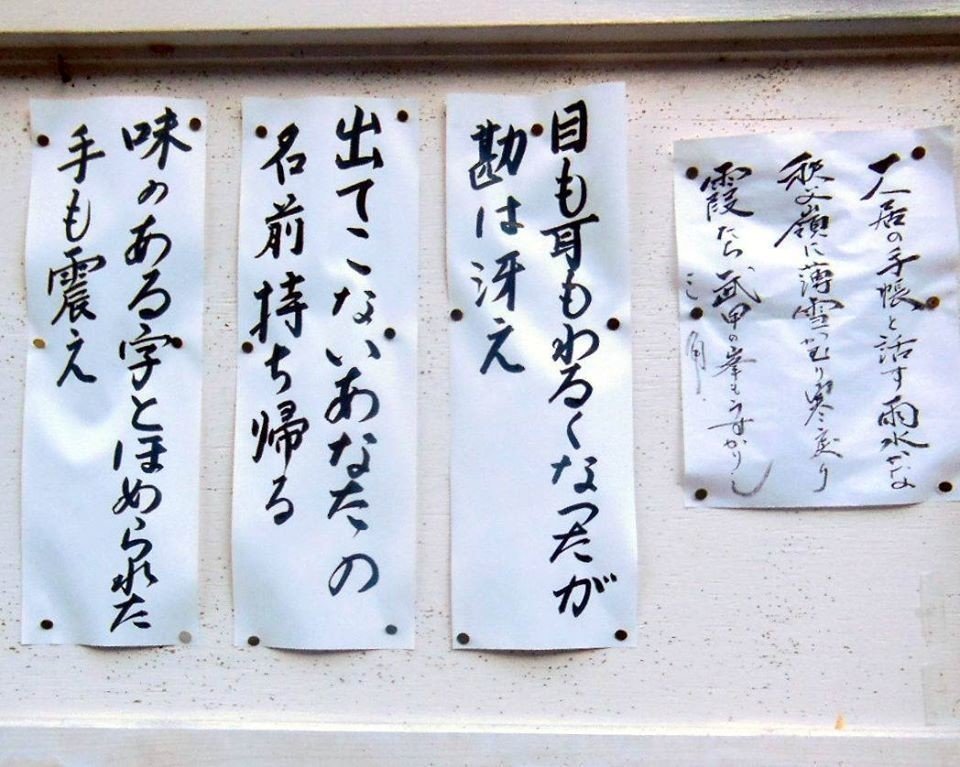 一人居の手帳と話す雨水かな
秩父嶺に薄雪つむり寒戻り
霞たち武甲の峯もうすかりし
目も耳もわるくなったが
勘は冴え
出てこないあなたの
名前持ち帰る
味のある字とほめられた
手も震え